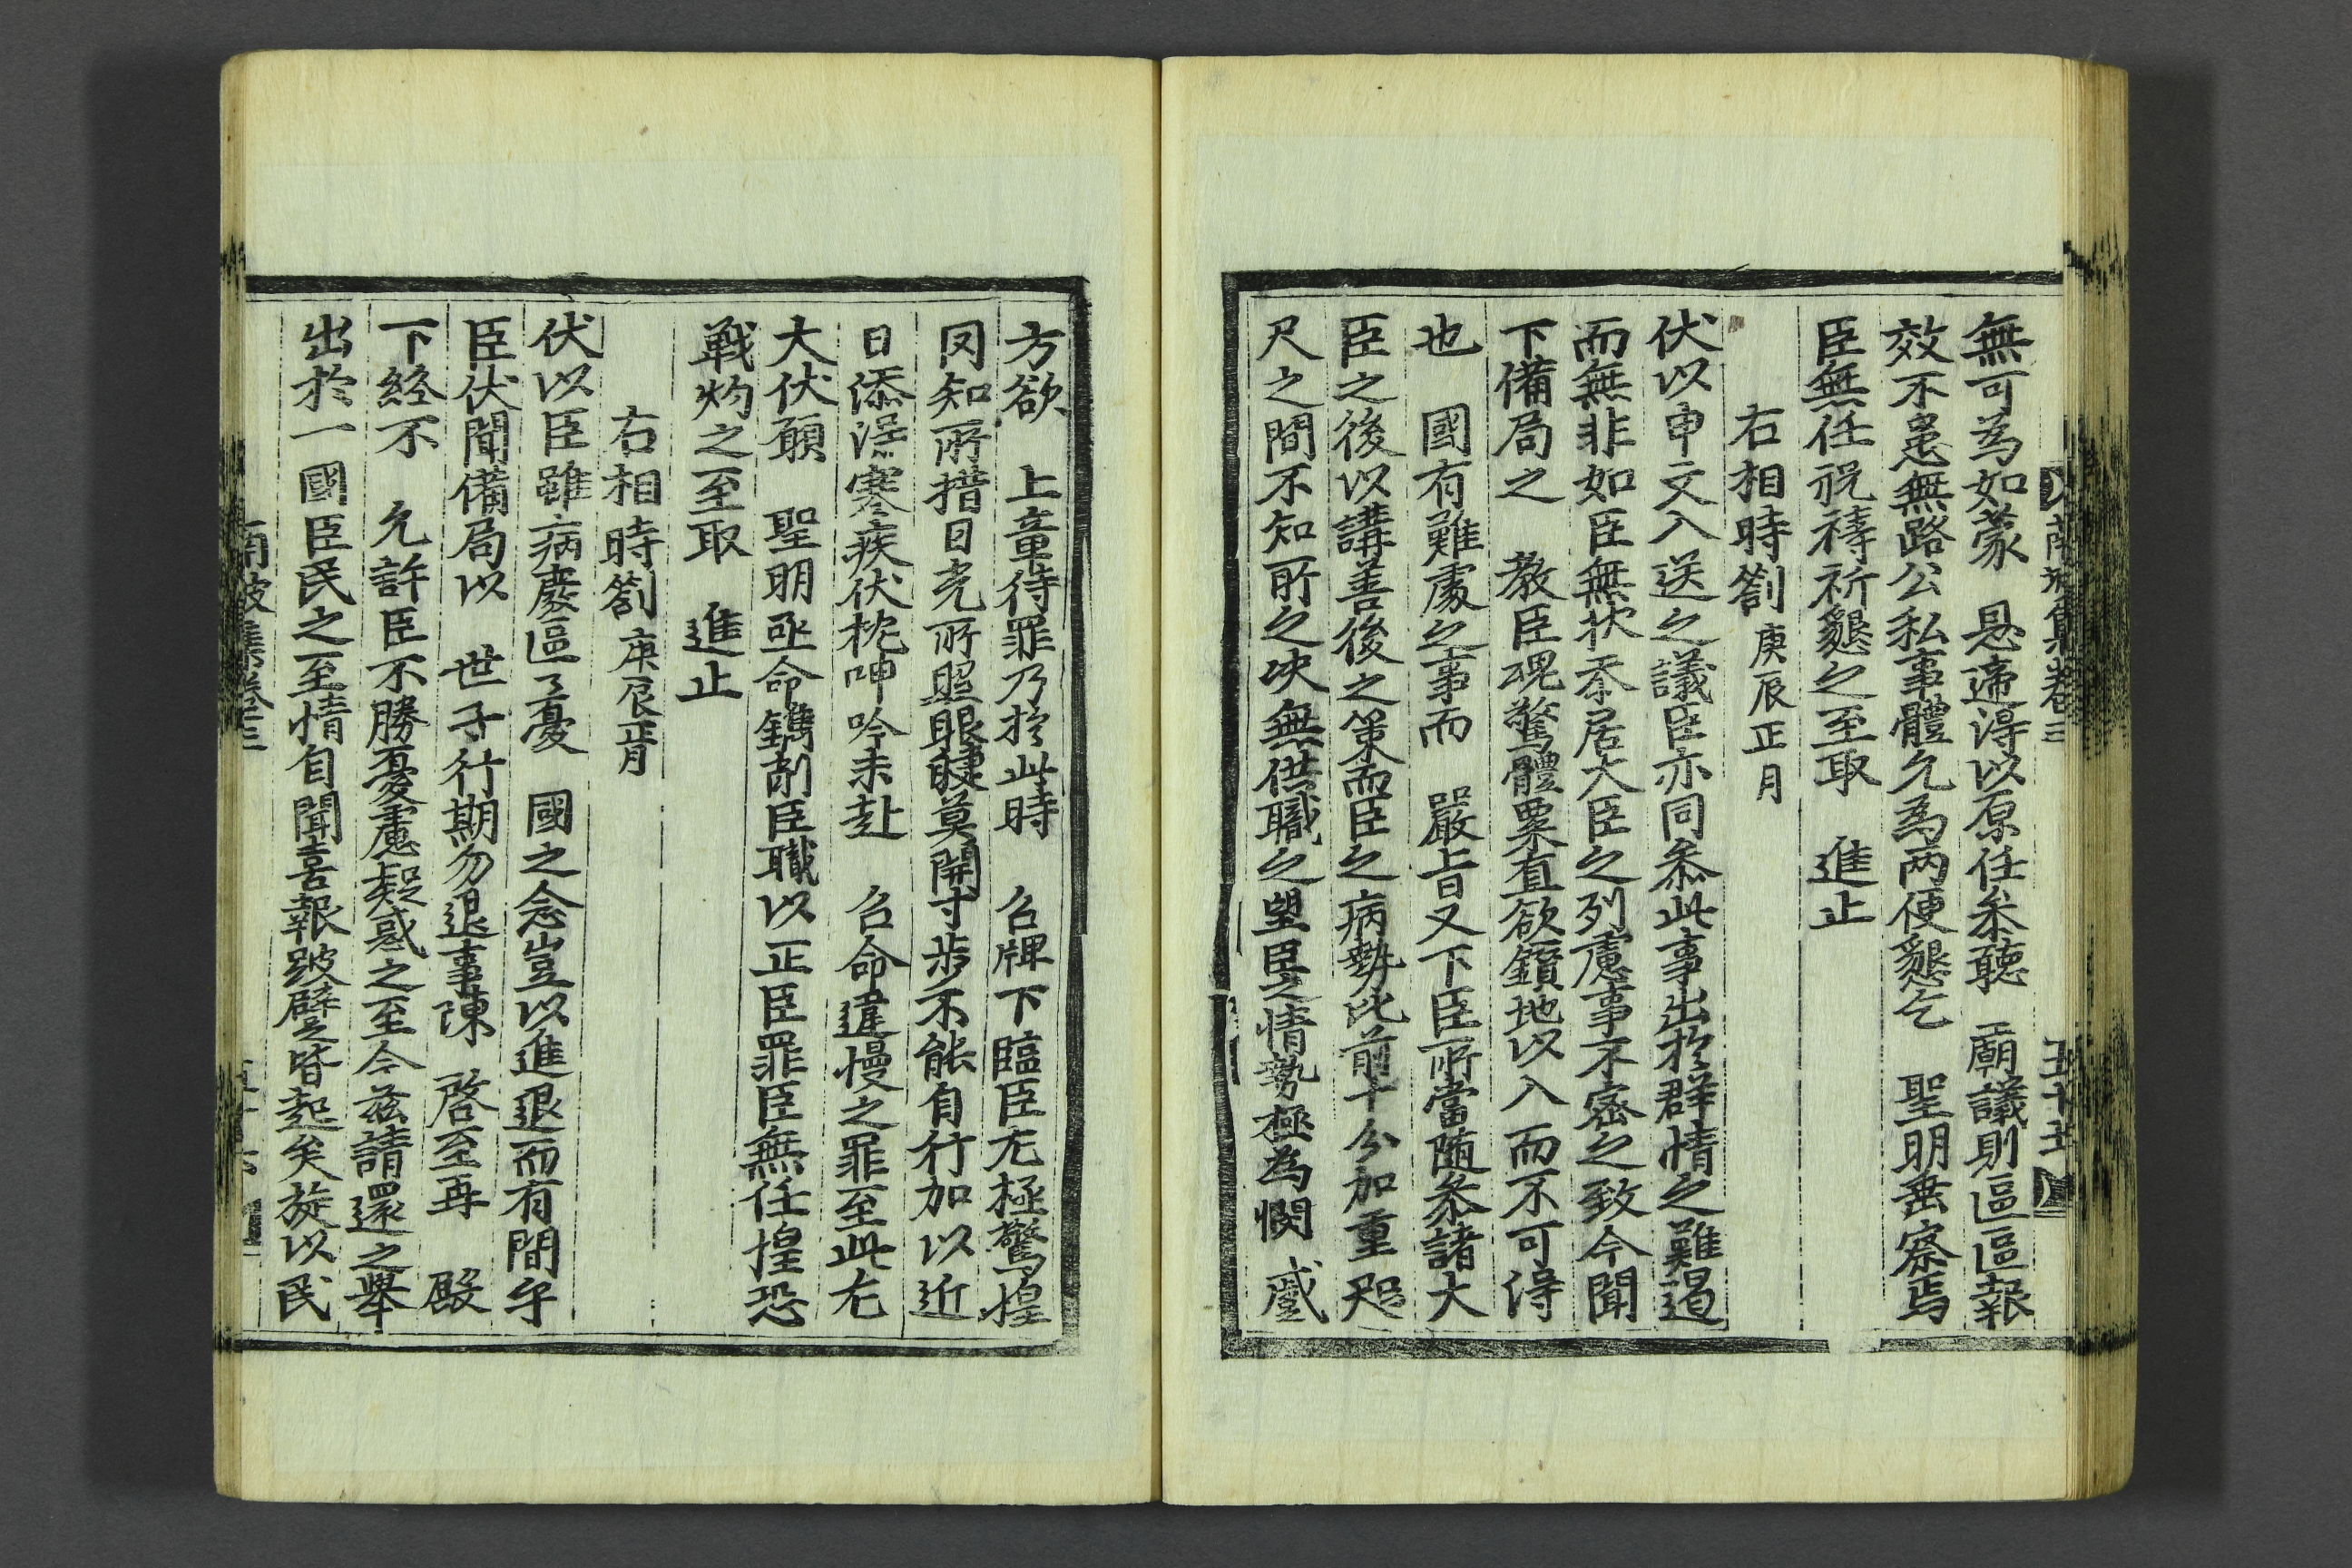 無可為如蒙 恩遆淂以原任叅聽 廟議則區區報
效不患無路公私事體允為两便懇乞 聖明垂察焉
臣無任祝禱祈懇之至取 進止
右相時劄 庚辰正月
伏以申文入送之議臣亦同叅此事出於群情之難遏
而無非如臣無状忝居大臣之列慮事不密之致今聞
下備局之 教臣魂驚體粟直欲鑽地以入而不可得
也 國有難處之事而 嚴旨又下臣所當随叅諸大
臣之後以講善後之策而臣之病勢比前十分加重咫
尺之間不知所之决無供職之望臣之情勢極為憫蹙
方欲 上章待罪乃於此時 召牌下臨臣尤極驚惶
罔知所措日光所照眼睫莫開寸步不能自行加以近
日添淂寒疾伏枕呻吟未赴 召命違慢之罪至此尤
大伏願 聖明亟命鐫削臣職以正臣罪臣無任惶恐
戦灼之至取 進止
右相時劄 庚辰正月
伏以臣雖病廢區區憂 國之念豈以進退而有間乎
臣伏聞備局以 世子行期勿退事陳 啓至再 殿
下終不 允許臣不勝憂慮疑惑之至今玆請還之擧
出於一國臣民之至情自聞喜報跛躄皆起矣旋以民
南坡集卷三 五十五
南坡集卷三